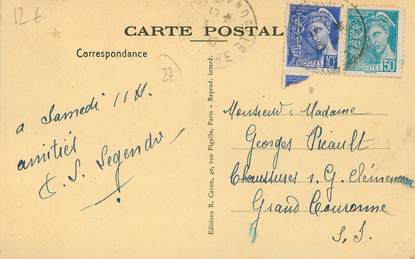 12€
CARTE POSTAL
Correspondance
à Samedi 11 H.
amitiés
S. Legendre
Editions R. Caron, 40, rue Pigalle, Paris - Reprod. interd.
POSTES 10
POSTES 50
Monsieur & Madame
Georges Picault
Chaussures r. G. Clémenceau
Grand Couronne
S. I.